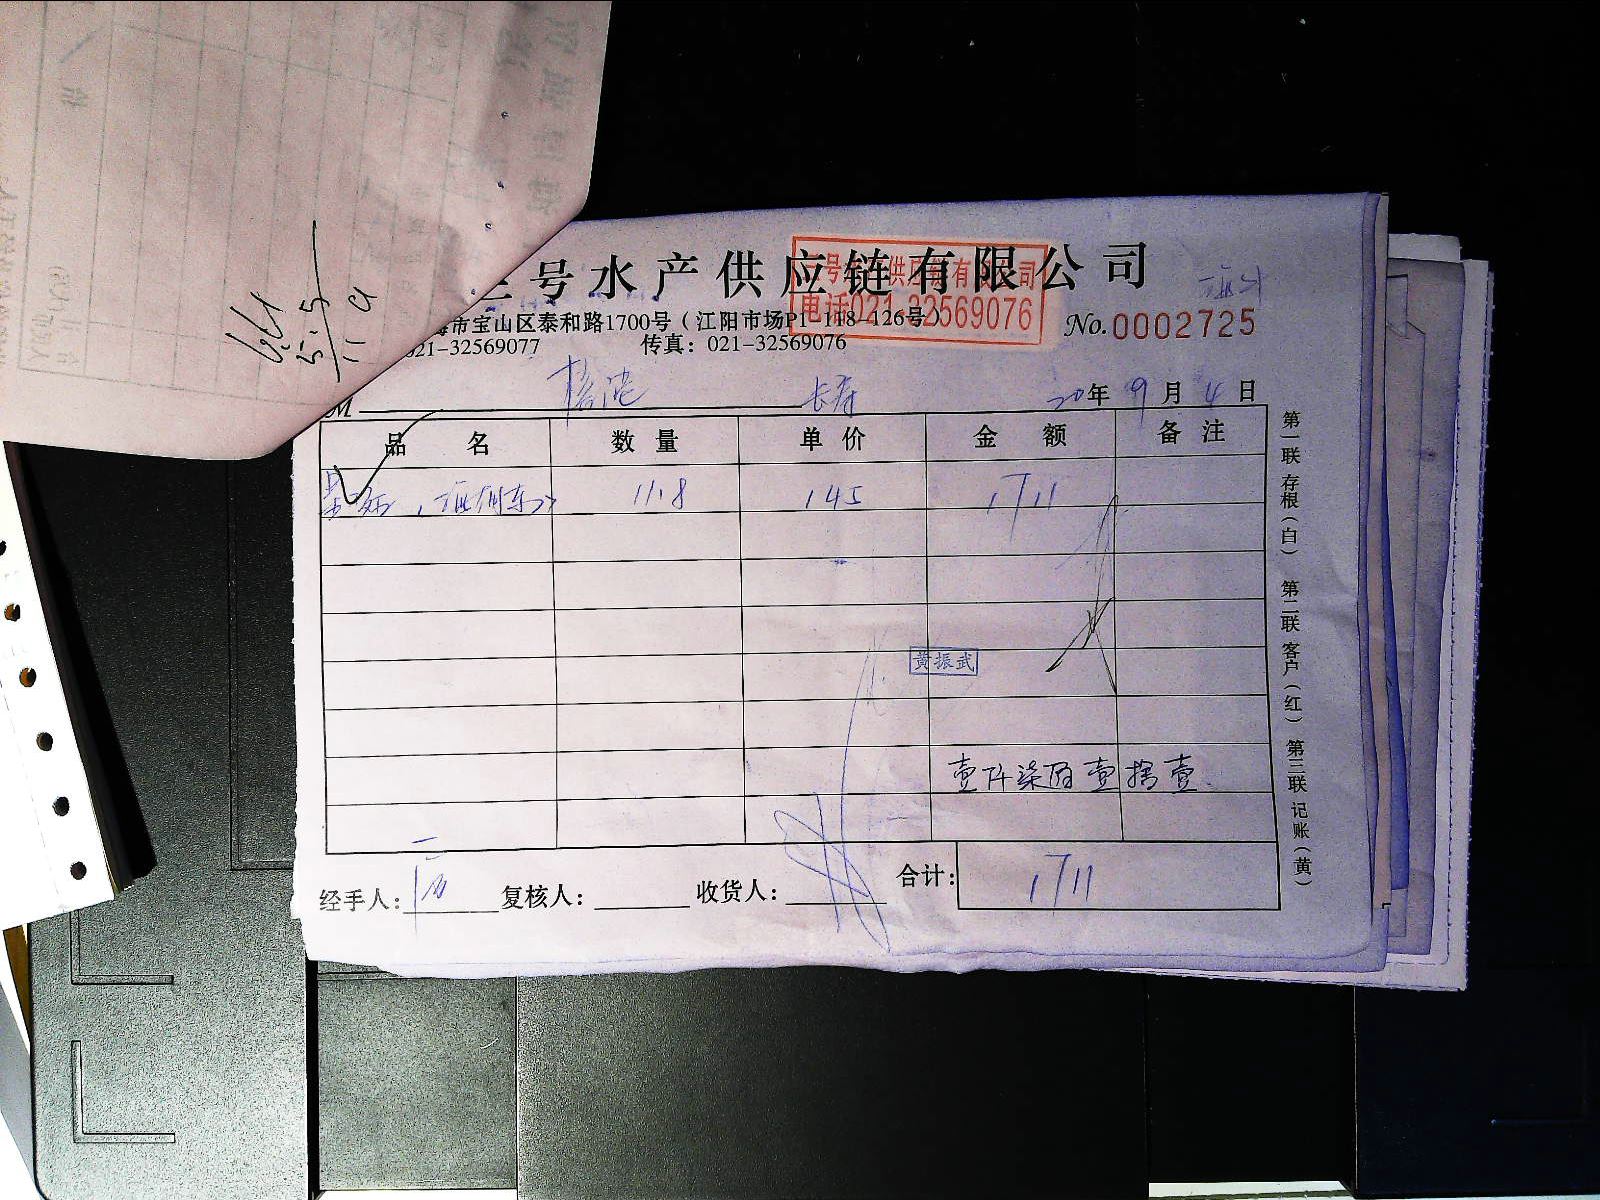 号水产供应链有限公司
号 供应链有限公司
电话021-32569076
海市宝山区泰和路1700号（江阳市场P1-118-126号）
No.0002725
021-32569077 传真：021-32569076
M 长寿 20年9月4日
品名 数量 单价 金额 备注
11.8 145 1711
黄振武
壹仟柒佰壹拾壹
经手人： 复核人： 收货人： 合计： 1711
第一联 存根（白） 第二联 客户（红） 第三联 记账（黄）